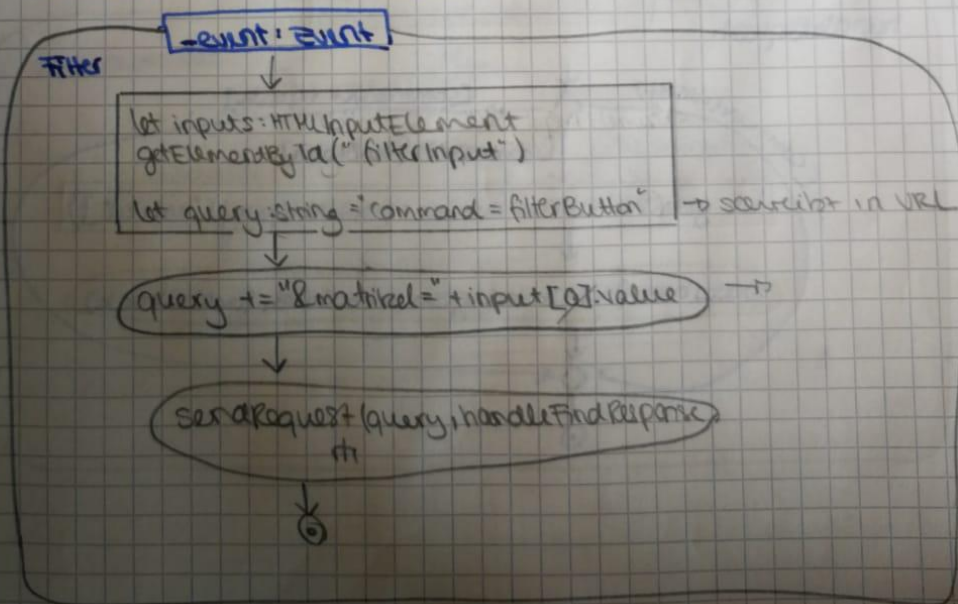 _event: Event
Filter
let inputs: HTMLInputElement
getElementById("filterInput")
let query:string = "command = filterButton" → in URL
query += "&matrikel=" + input[0].value →
sendRequest(query, handleFindResponse)